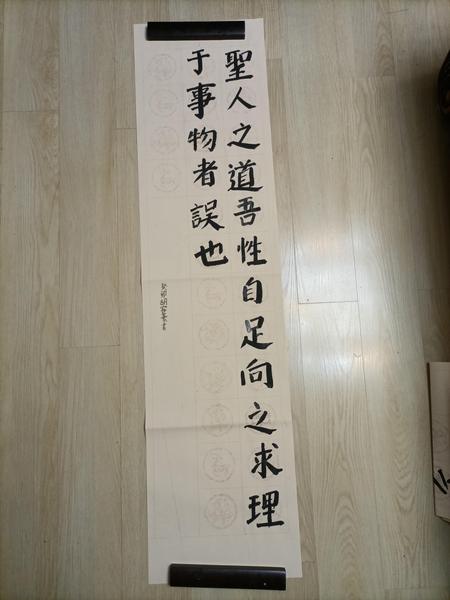 聖人之道吾性自足向之求理
于事物者誤也